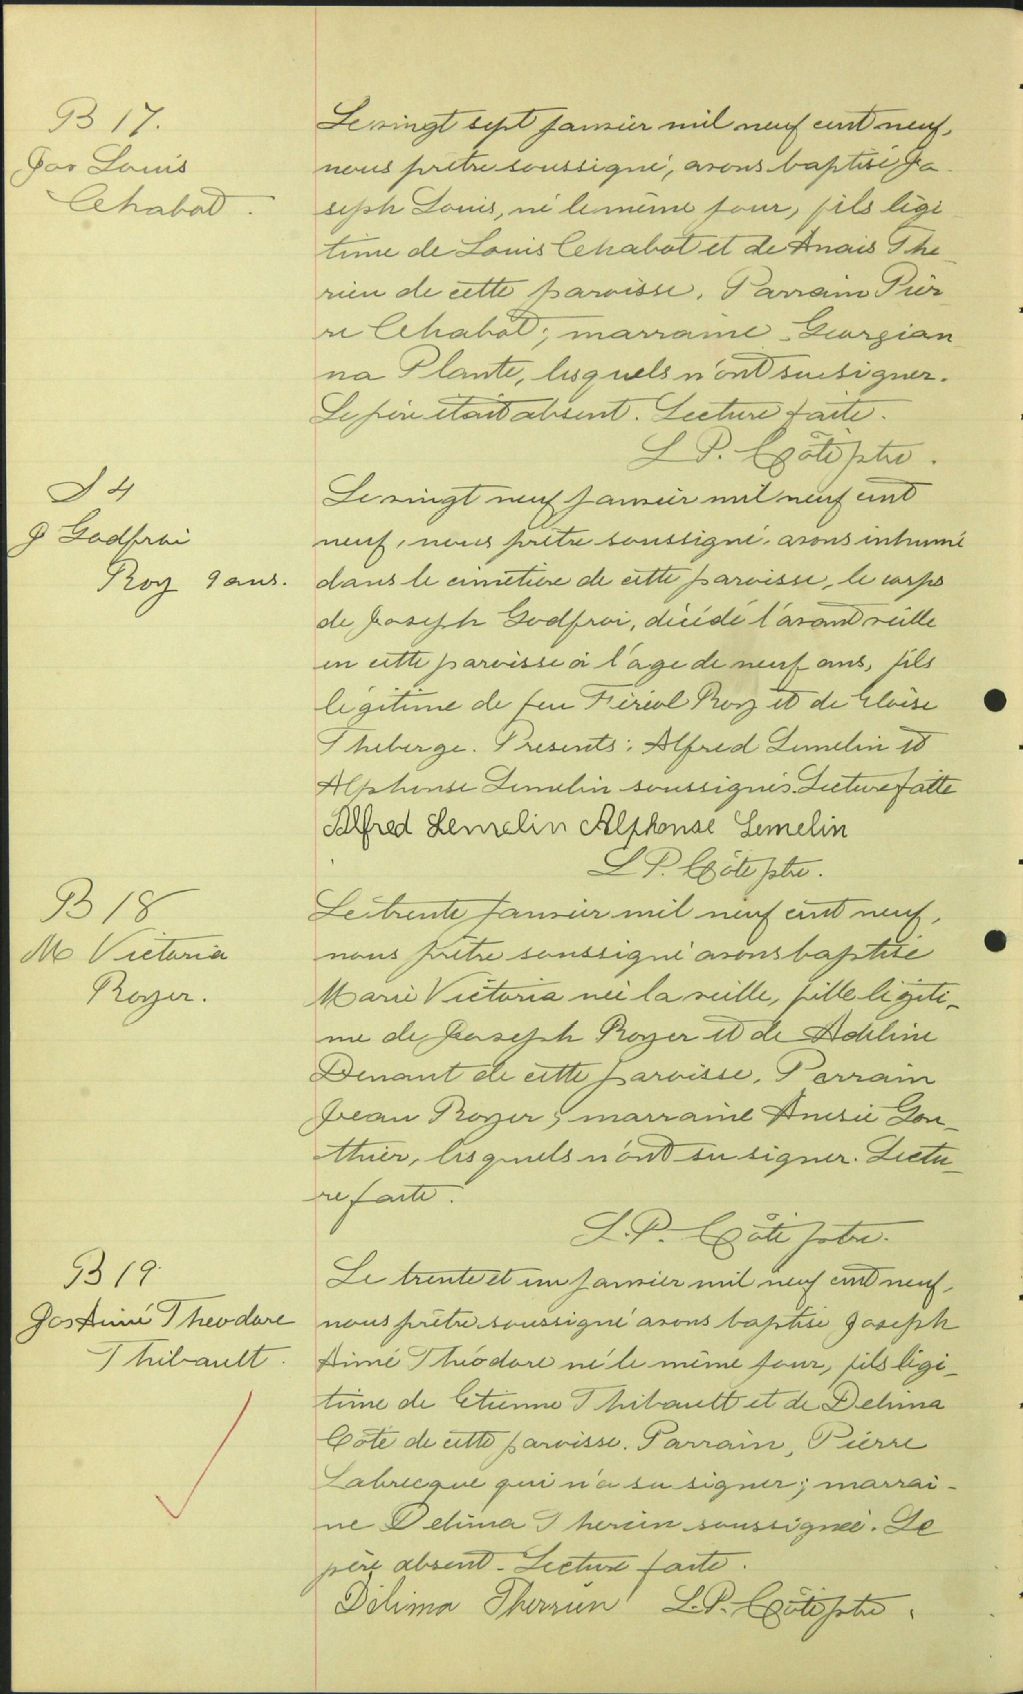 B 17.
Jos Louis
Chabot.
Le vingt sept janvier mil neuf cent neuf,
nous prêtre soussigné, avons baptisé Jo-
seph Louis, né le même jour, fils légi
time de Louis Chabot et de Anais The-
rien de cette paroisse. Parrain Pier-
re Chabot; marraine Georgian
na Plante, lesquels n'ont su signer.
Le père était absent. Lecture faite.
L P. Côté ptre.
S 4
J Godfroi
Roy 9 ans.
Le vingt neuf janvier mil neuf cent
neuf, nous prêtre soussigné, avons inhumé
dans le cimetière de cette paroisse, le corps
de Joseph Godfroi, décédé l'avant veille
en cette paroisse à l'age de neuf ans, fils
légitime de feu Féréol Roy et de Eloise
Theberge. Présents: Alfred Lemelin et
Alphonse Lemelin soussignés. Lecture faite
Alfred Lemelin Alphonse Lemelin
L P. Côté ptre.
B 18
M Victoria
Royer.
Le trente janvier mil neuf cent neuf,
nous prêtre soussigné avons baptisé
Marie Victoria née la veille, fille légiti-
me de Joseph Royer et de Adeline
Denant de cette paroisse. Parrain
Jean Royer; marraine Anésie Gon-
thier, lesquels n'ont su signer. Lectu-
re faite.
L.P. Côté ptre.
B 19
Jos Aimé Theodore
Thibault.
Le trente et un janvier mil neuf cent neuf,
nous prêtre soussigné avons baptisé Joseph
Aimé Théodore né le même jour, fils légi-
time de Etienne Thibault et de Delima
Côté de cette paroisse. Parrain, Pierre
Labrecque qui n'a su signer; marrai-
ne Delima Therien soussignée. Le
père absent. Lecture faite.
Délima Therrien L.P. Côté ptre.